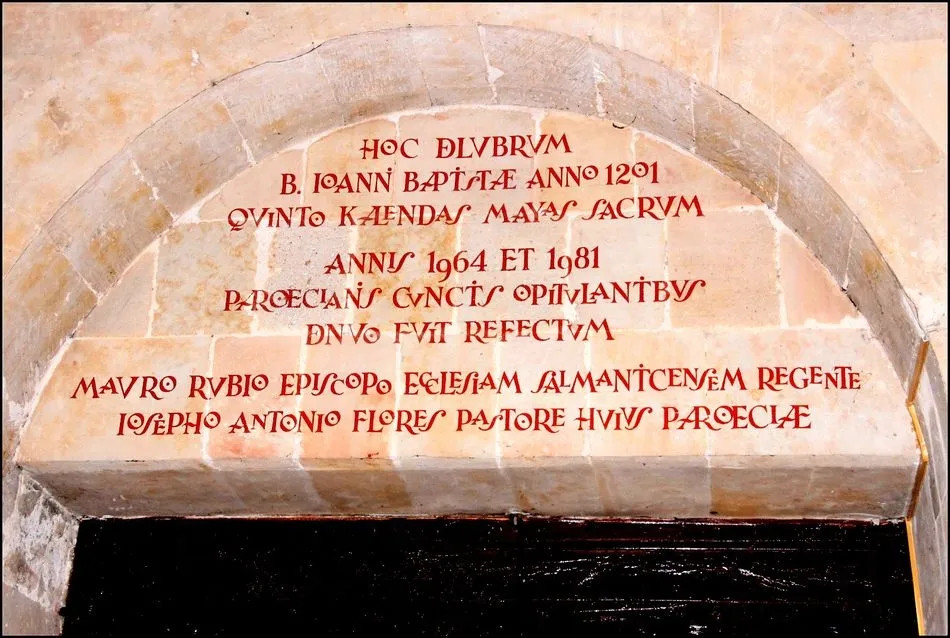 HOC DLVBRVM
B. IOANNI BAPTISTÆ ANNO 1201
QVINTO KALENDAS MAYAS SACRVM
ANNIS 1964 ET 1981
PAROECIANIS CVNCTIS OPITVLANTIBVS
DNVO FVIT REFECTVM
MAVRO RVBIO EPISCOPO ECCLESIAM SALMANTICENSEM REGENTE
IOSEPHO ANTONIO FLORES PASTORE HVIVS PAROECIÆ